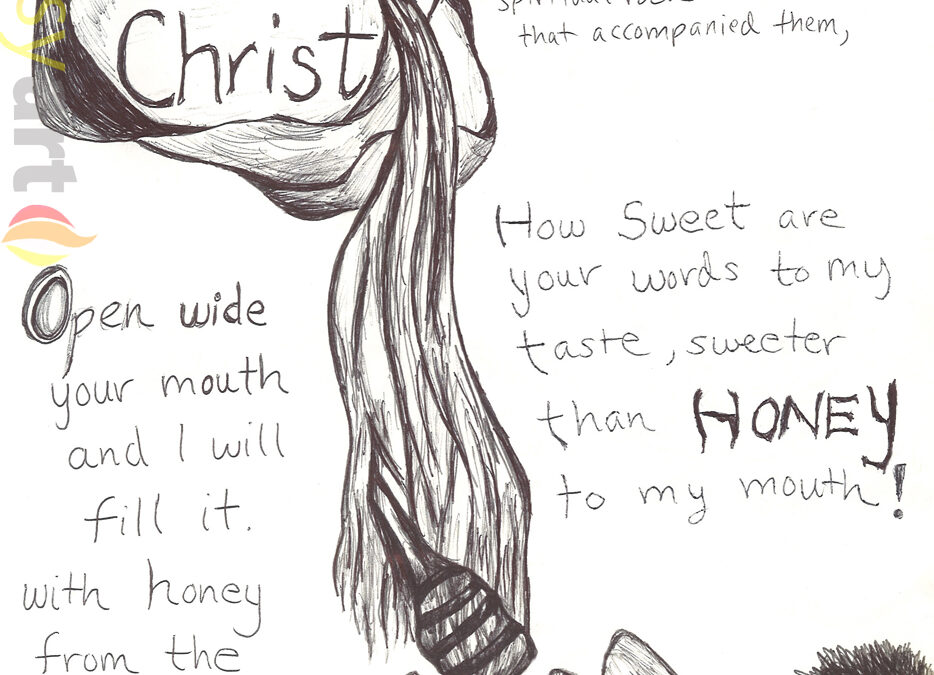 Christ
that accompanied them,
How Sweet are
your words to my
taste, sweeter
than HONEY
to my mouth!
Open wide
your mouth
and I will
fill it.
with honey
from the
sy art